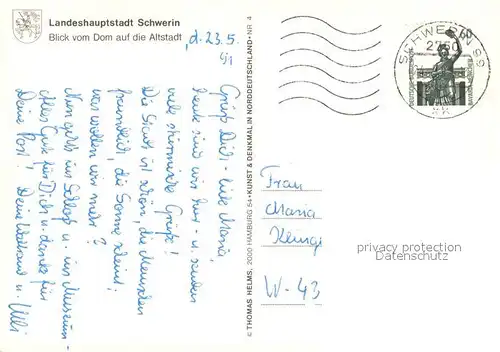 Landeshauptstadt Schwerin
Blick vom Dom auf die Altstadt
d. 23.5.
91
Grüß Dich - liebe Maria,
heute sind wir hier - u. senden
viele stürmische Grüße!
Die Stadt ist schön, die Menschen
freundlich, die Sonne scheint,
was wollen wir mehr?
Nun geht's ins Schloß u. ins Museum -
Alles Gute für Dich u. danke für
Deine Post! Deine u. Uli
© THOMAS HELMS, 2000 HAMBURG 54 • KUNST & DENKMAL IN NORDDEUTSCHLAND • NR. 4
SCHWERIN 99
2760
60
Frau
Maria
W-43
privacy protection
Datenschutz